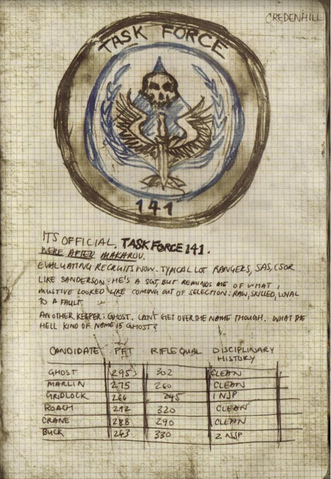 CREDENHILL
TASK FORCE
141
ITS OFFICIAL, TASK FORCE 141.
WERE AFTER MAKAROV.
EVALUATING RECRUITS NOW. TYPICAL LOT RANGERS, SAS, CSOR
LIKE SANDERSON. HE'S A SGT, BUT REMINDS ME OF
LOOKED LIKE COMING OUT OF SELECTION: RAW, SKILLED, LOYAL
TO A FAULT.
ANOTHER KEEPER: GHOST. CAN'T GET OVER THE NAME THOUGH. WHAT THE
HELL KIND OF NAME IS GHOST?
CANDIDATE PFT RIFLE QUAL DISCIPLINARY
HISTORY
GHOST 295 302 CLEAN
MARLIN 275 260 CLEAN
GRIDLOCK 266 245 1 NJP
ROACH 292 320 CLEAN
CRANE 288 290 CLEAN
BUCK 243 330 2 NJP